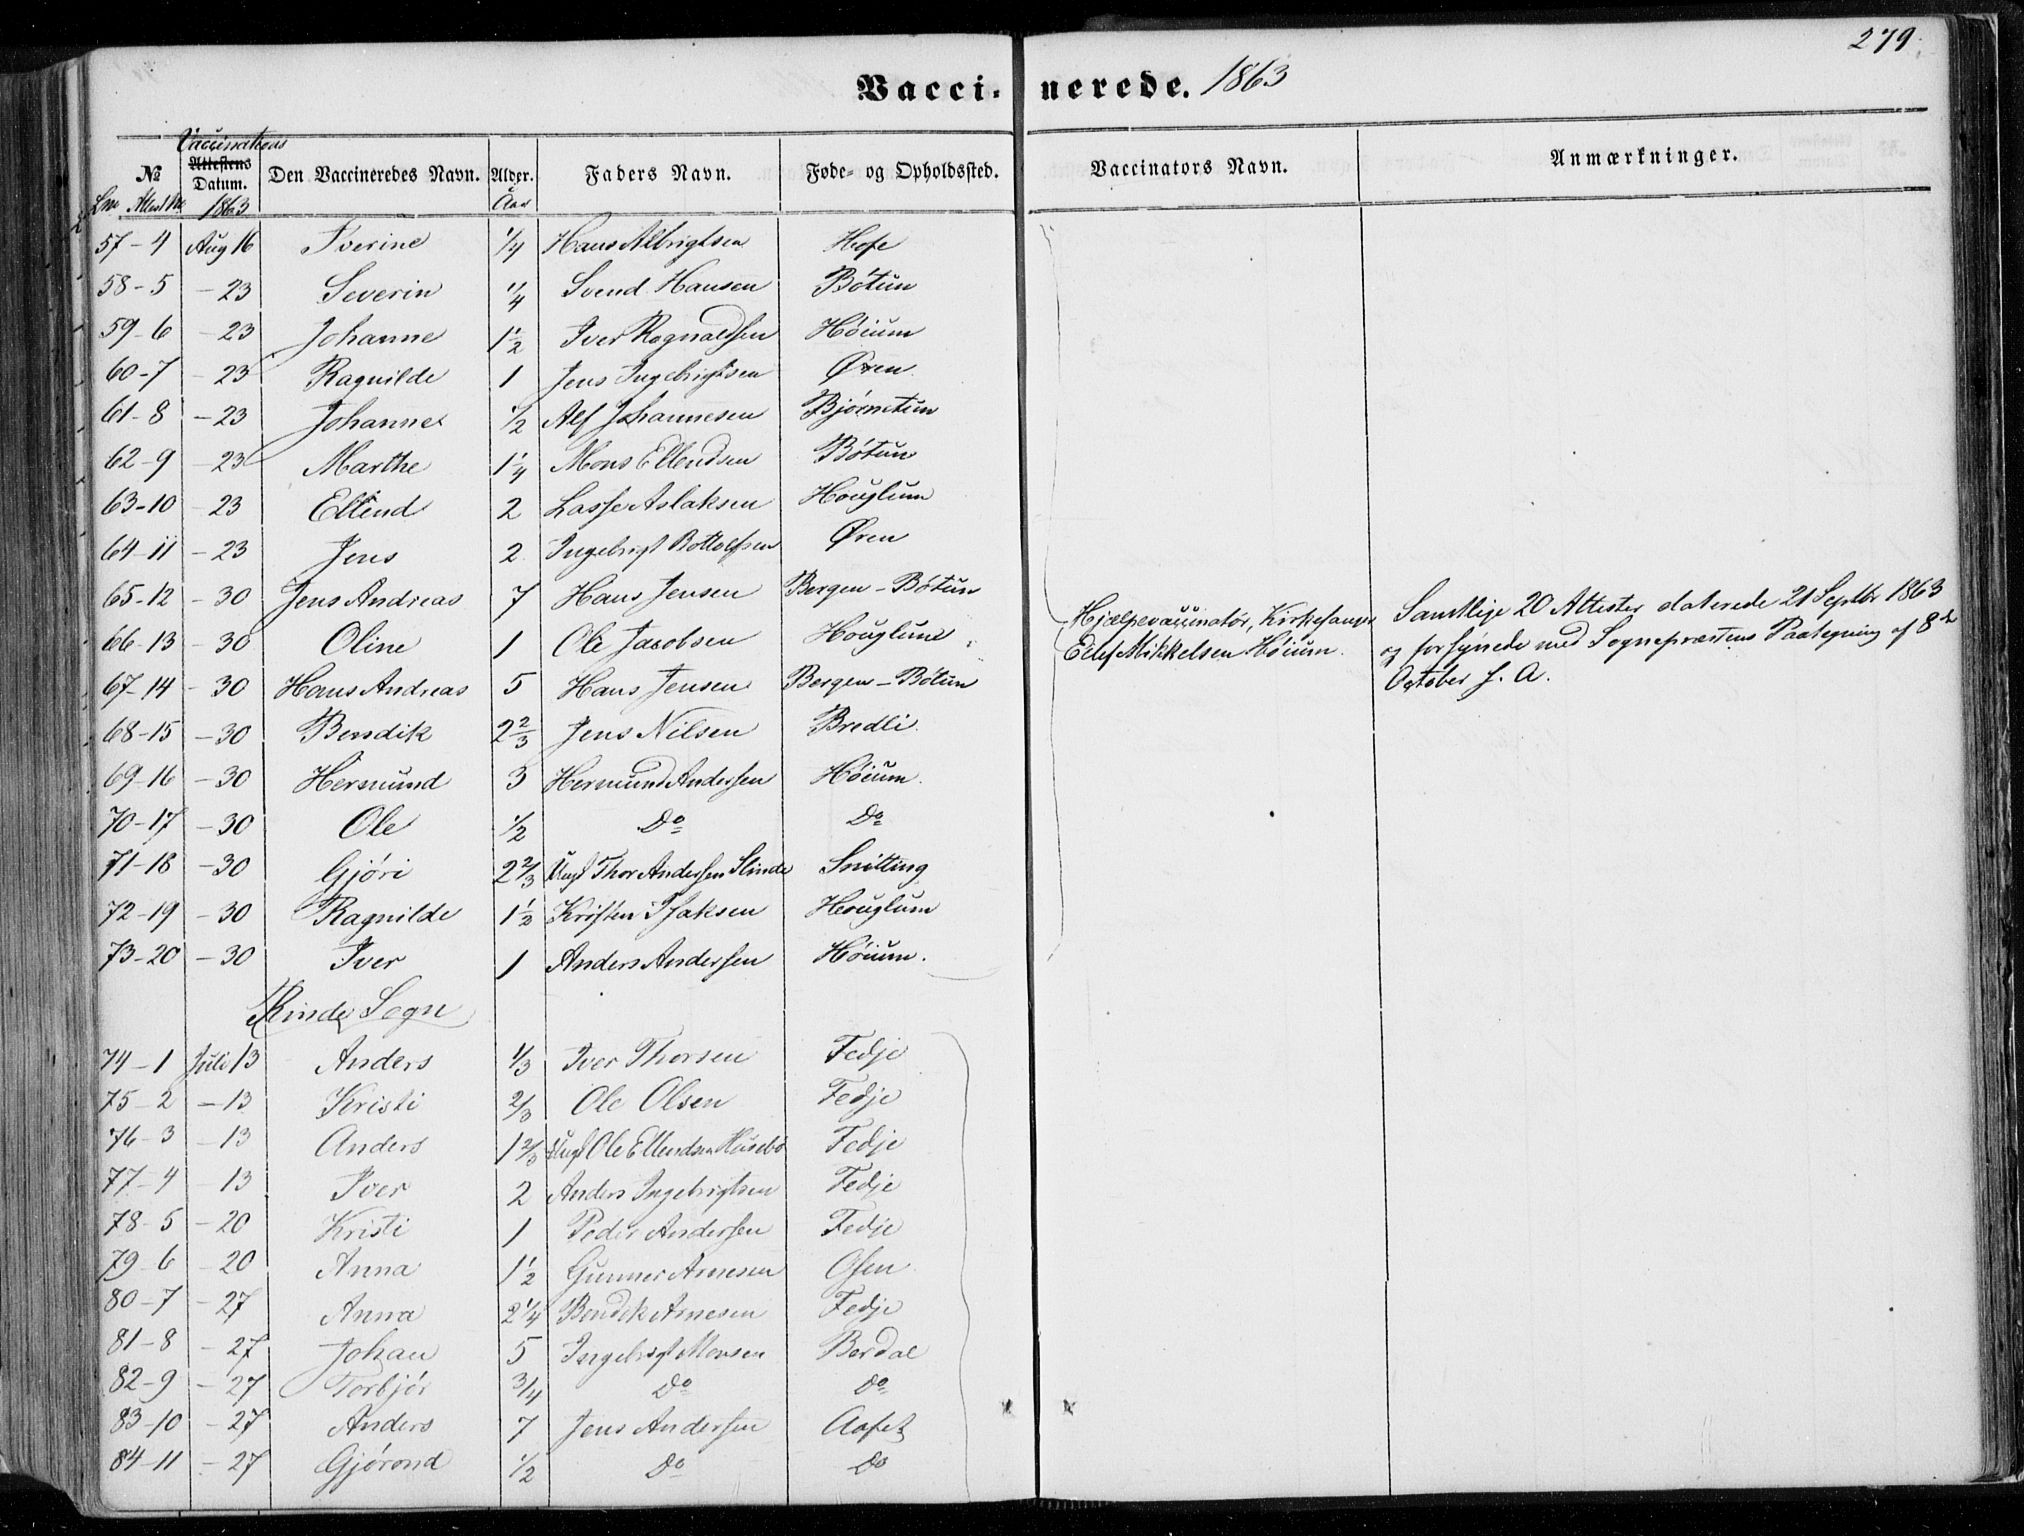 279.
Vaccinerede. 1863
Vaccinations
№ Attestens Datum. Den Vaccineredes Navn. Alder. Faders Navn. Føde- og Opholdssted. Vaccinators Navn. Anmærkninger.
Lnr Attest № 1863 i Aar
57-4 Aug 16 Iverine 1/4 Hans Albrigtsen Hofe
58-5 -23 Severin 1/4 Svend Hansen Bótun
59-6 -23 Johanne 1 1/2 Iver Rognaldsen Hóium
60-7 -23 Ragnilde 1 Jens Ingebrigtsen Øren
61-8 -23 Johannes 1/2 Alf Johannesen Bjórnetun
62-9 -23 Marthe 1 1/4 Mons Ellendsen Bótun
63-10 -23 Ellend 2 Lasse Aslaksen Houglum
64-11 -23 Jens 2 Ingebrigt Bottolfsen Øren
65-12 -30 Jens Andreas 7 Hans Jensen Bergen-Bótun
66-13 -30 Oline 1 Ole Jacobsen Houglum
67-14 -30 Hans Andreas 5 Hans Jensen Bergen-Bótun
68-15 -30 Bendik 2 2/3 Jens Nilsen Bredli
69-16 -30 Hermund 3 Hermund Andersen Hóium
70-17 -30 Ole 1/2 Do Do
71-18 -30 Gjóri 2 2/3 Ungk Thor Andersen Slinde Snitting
72-19 -30 Ragnilde 1 1/2 Kristen Isaksen Houglum
73-20 -30 Iver 1 Anders Andersen Hóium.
Hjælpevaccinatør, Kirkesanger
Edlef Mikkelsen Hóium.
Samtlige 20 Attester daterede 21 Septbr 1863
og forsynede med Sognepræstens Paategning af 8de
October s. A.
Rinde Sogn
74-1 Juli 13 Anders 1/3 Iver Thorsen Fedje
75-2 -13 Kristi 2/3 Ole Olsen Fedje
76-3 -13 Anders 1 2/3 Ungk Ole Ellendsen Husebó Fedje
77-4 -13 Iver 2 Anders Ingebrigtsen Fedje
78-5 -20 Kristi 1 Peder Andersen Fedje
79-6 -20 Anna 1 1/2 Gunner Arnesen Osen
80-7 -27 Anna 2 1/4 Bendik Arnesen Fedje
81-8 -27 Johan 5 Ingebrigt Monsen Berdal
82-9 -27 Torbjór 3/4 Do Do
83-10 -27 Anders 7 Jens Andersen Aafet
84-11 -27 Gjórond 1/2 Do Do